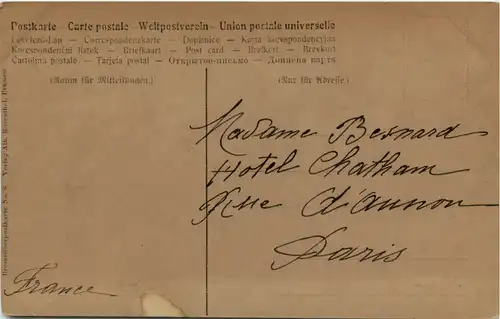 Postkarte — Carte postale — Weltpostverein — Union postale universelle
Levelezö-Lap — Correspondenzkarte — Dopisnice — Karta korespondencyjna
Korespondenční lístek — Briefkaart — Post card — Brefkort — Brevkort
Cartolina postale — Tarjeta postal — Открытое письмо — Дописна карта
(Raum für Mitteilungen.)
(Nur für Adresse.)
Madame Bernard
Hotel Chatham
Rue d'aunou
Paris
France
No. 8 Verlag Alb.